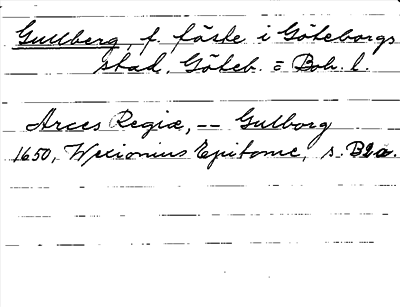 Gullberg, f. fäste i Göteborgs
stad, Göteb. = Boh. l.
Arces Regiæ, -- Gulborg
1650, Wexionius Epitome, s. B2a.